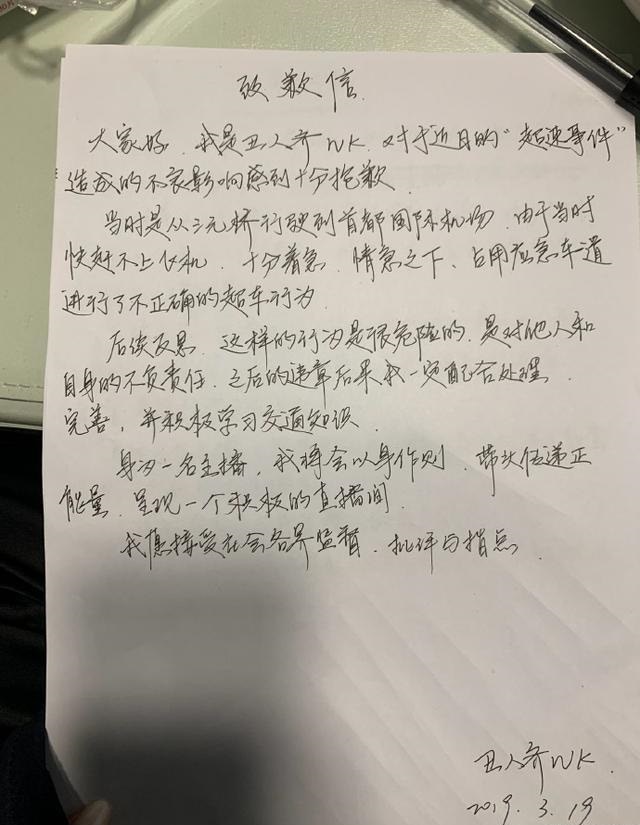 致歉信
大家好，我是丑人齐WK，对于近日的“超速事件”
造成的不良影响感到十分抱歉。
当时是从三元桥行驶到首都国际机场，由于当时
快赶不上飞机，十分着急，情急之下、占用应急车道
进行了不正确的超车行为
后续反思，这样的行为是很危险的，是对他人和
自身的不负责任，之后的违章后果我一定配合处理
完善，并积极学习交通知识
身为一名主播，我将会以身作则，带头传递正
能量，呈现一个积极的直播间
我愿接受社会各界监督、批评与指点
丑人齐WK.
2019.3.19